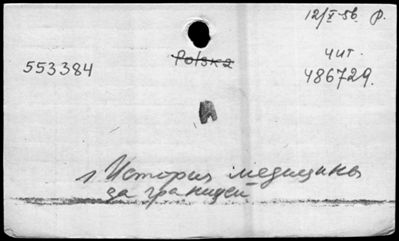 12/X-56 р.
Polska
чит.
553384
486729.
1. История медицины
за границей